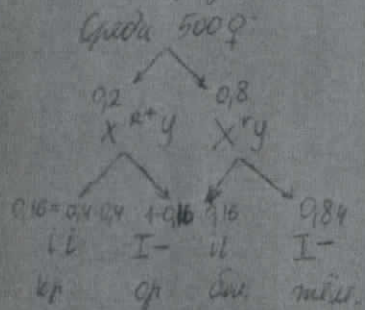 Среди 500 ♀
0,2 0,8
X^R+ Y X^r Y
0,16 = 0,4·0,4 1-0,16 0,16 0,84
ii I- ii I-
кр ор бел. жёлт.